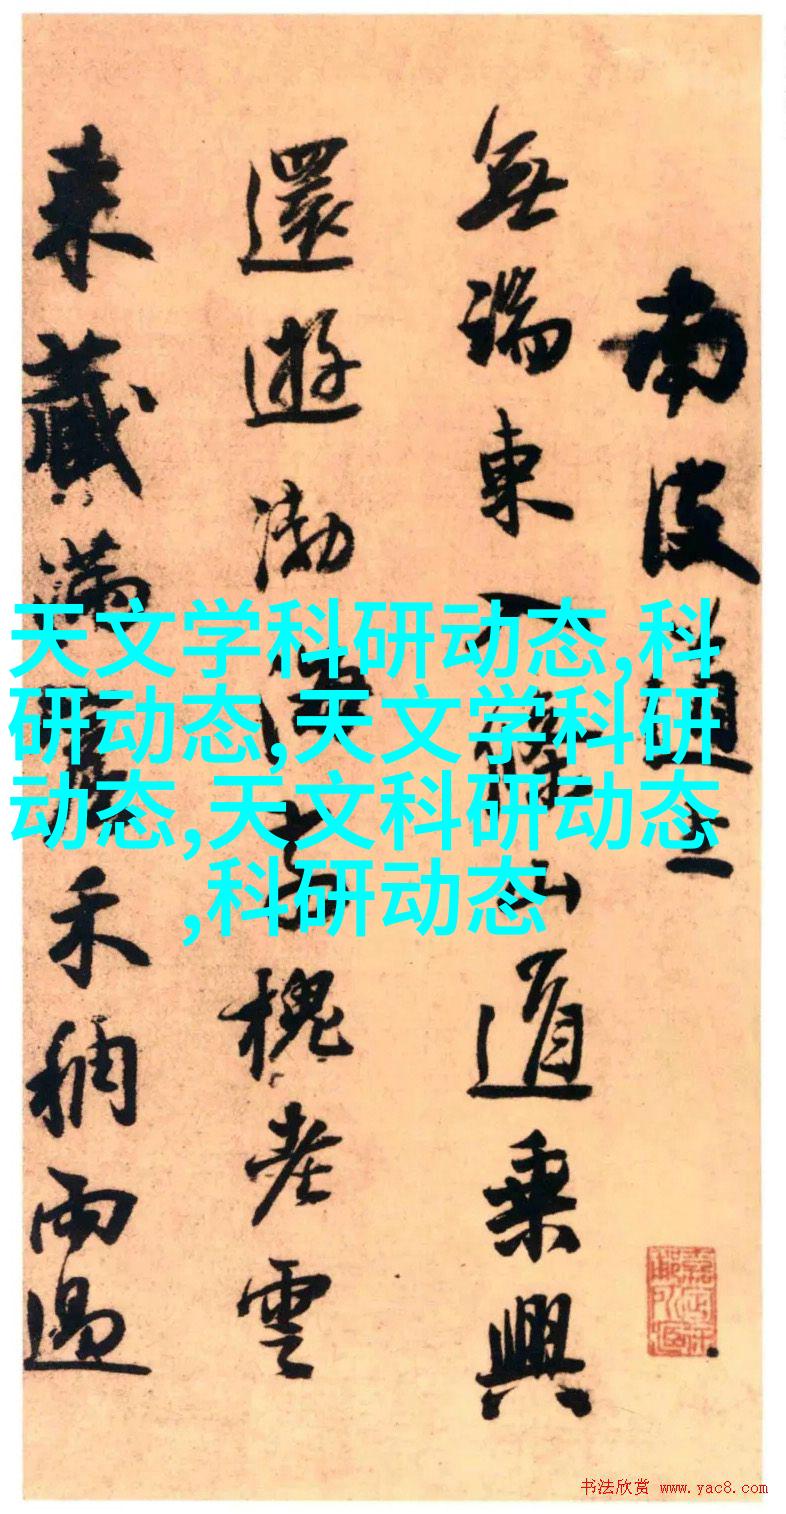 南皮道上
無端東入山道乘興
還遊渤海槐老雲
來藏滿禾稠雨過
天文学科研动态,科
研动态,天文学科研
动态,天文科研动态
,科研动态
书法欣赏 www.yac8.com